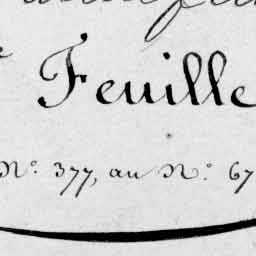 Feuille
N.° 377, au N.° 67